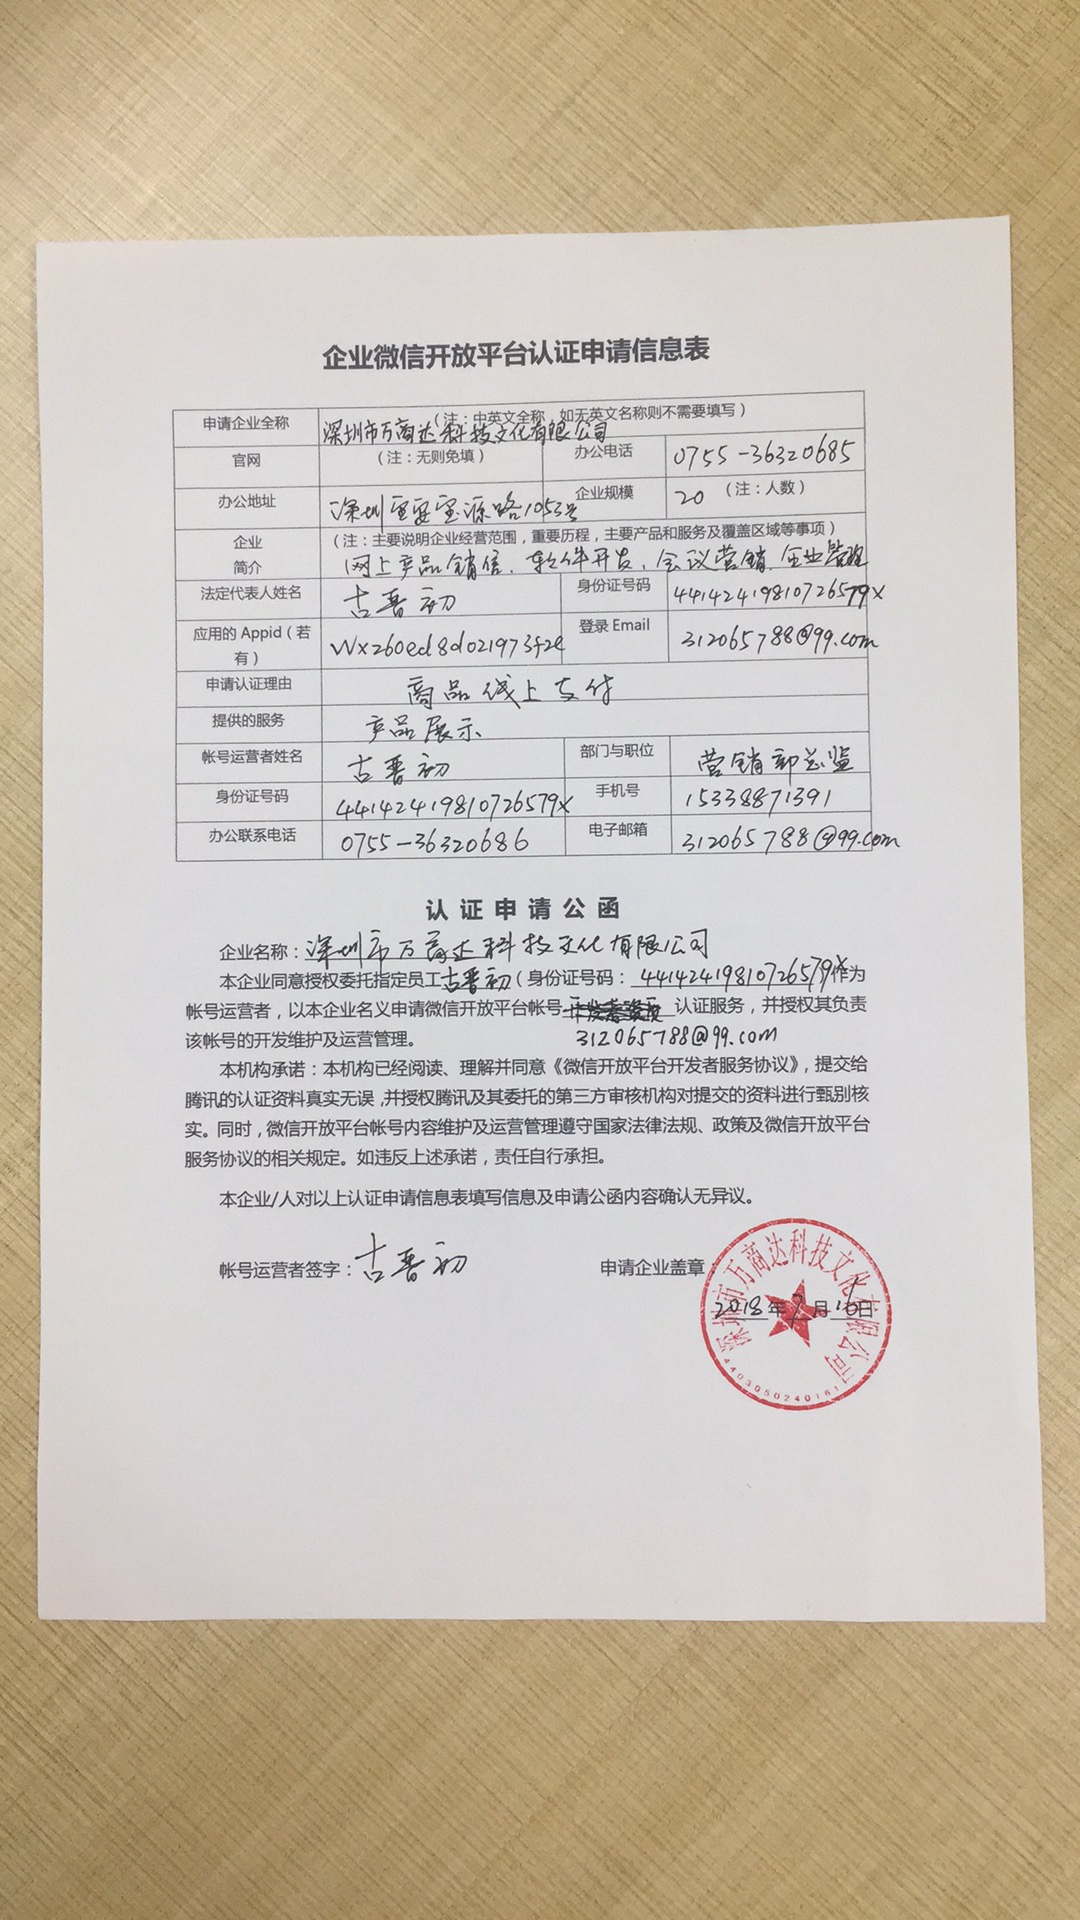 企业微信开放平台认证申请信息表
申请企业全称 (注：中英文全称，如无英文名称则不需要填写)
深圳市万商达科技文化有限公司
官网 (注：无则免填) 办公电话 0755-36320685
办公地址 深圳宝安宝源路1053号 企业规模 20 (注：人数)
企业简介 (注：主要说明企业经营范围，重要历程，主要产品和服务及覆盖区域等事项)
网上产品销售、软件开发、会议营销、企业管理
法定代表人姓名 古晋初 身份证号码 44142419810726579X
应用的 Appid（若有） wx260ed8d021973f2e 登录 Email 312065788@qq.com
申请认证理由 商品线上支付
提供的服务 产品展示
帐号运营者姓名 古晋初 部门与职位 营销部总监
身份证号码 44142419810726579X 手机号 15338871391
办公联系电话 0755-36320686 电子邮箱 312065788@qq.com
认证申请公函
企业名称：深圳市万商达科技文化有限公司
本企业同意授权委托指定员工古晋初（身份证号码：44142419810726579X作为
帐号运营者，以本企业名义申请微信开放平台帐号 认证服务，并授权其负责
该帐号的开发维护及运营管理。 312065788@qq.com
本机构承诺：本机构已经阅读、理解并同意《微信开放平台开发者服务协议》，提交给
腾讯的认证资料真实无误，并授权腾讯及其委托的第三方审核机构对提交的资料进行甄别核
实。同时，微信开放平台帐号内容维护及运营管理遵守国家法律法规、政策及微信开放平台
服务协议的相关规定。如违反上述承诺，责任自行承担。
本企业/人对以上认证申请信息表填写信息及申请公函内容确认无异议。
帐号运营者签字：古晋初 申请企业盖章
2018年 月 日
深圳市万商达科技文化有限公司
4403050240161